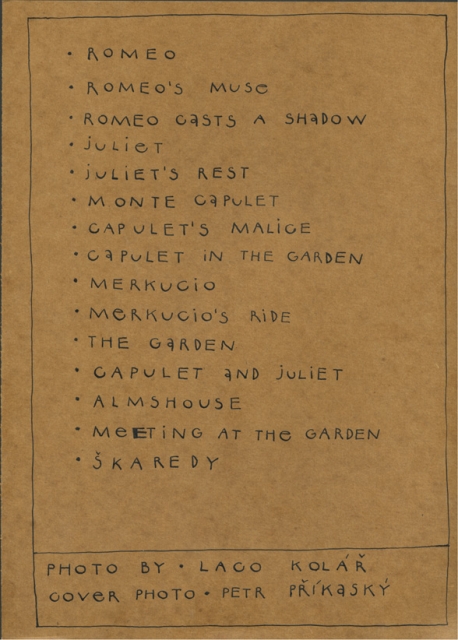 • ROMEO
• ROMEO'S MUSE
• ROMEO CASTS A SHADOW
• JULIET
• JULIET'S REST
• MONTE CAPULET
• CAPULET'S MALICE
• CAPULET IN THE GARDEN
• MERKUCIO
• MERKUCIO'S RIDE
• THE GARDEN
• CAPULET AND JULIET
• ALMSHOUSE
• MEETING AT THE GARDEN
• ŠKAREDY
PHOTO BY • LACO KOLÁŘ
COVER PHOTO • PETR PŘÍKASKÝ